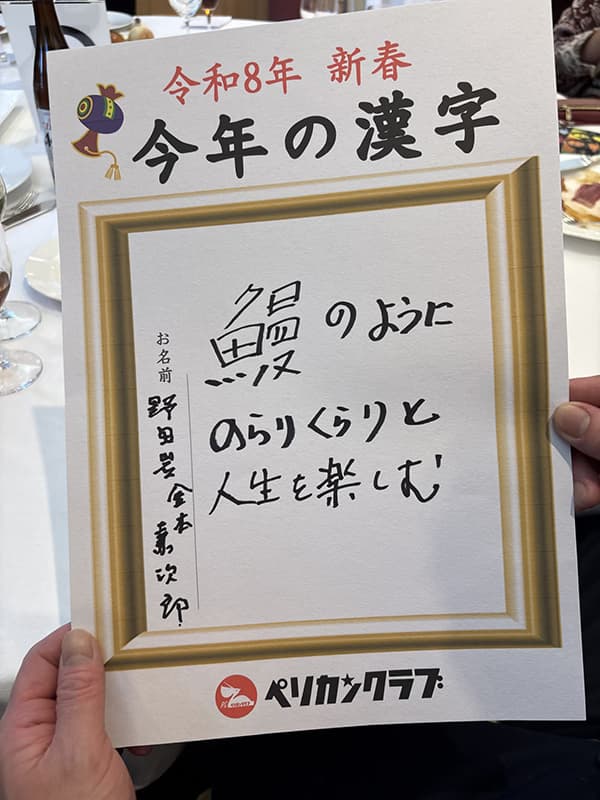 令和8年 新春
今年の漢字
鰻のように
のらりくらりと
人生を楽しむ
お名前 野田岩 金本兼次郎
ペリカンクラブ